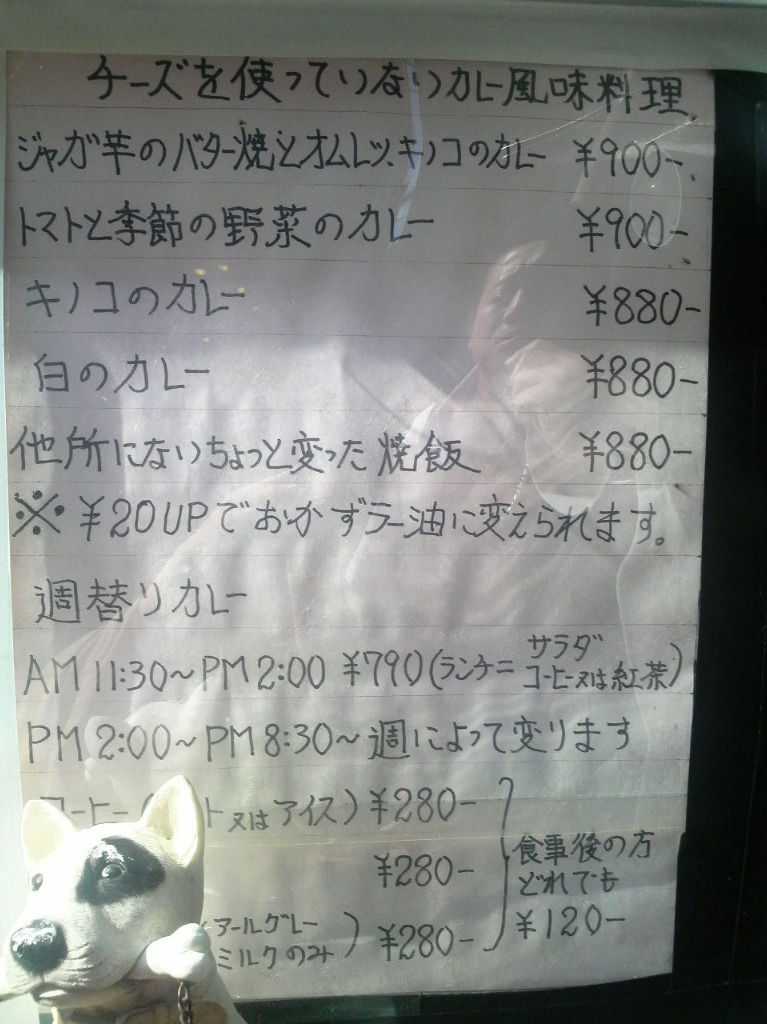 チーズを使っていないカレー風味料理
ジャガ芋のバター焼とオムレツ、キノコのカレー ¥900-
トマトと季節の野菜のカレー ¥900-
キノコのカレー ¥880-
白のカレー ¥880-
他所にないちょっと変った焼飯 ¥880-
※ ¥20UPでおかずラー油に変えられます。
週替りカレー
AM 11:30~PM 2:00 ¥790(ランチ= サラダ
コーヒー又は紅茶)
PM 2:00~PM 8:30~週によって変ります
コーヒー( ト又はアイス) ¥280-
¥280-
アールグレー
ミルクのみ) ¥280-
食事後の方
どれでも
¥120-